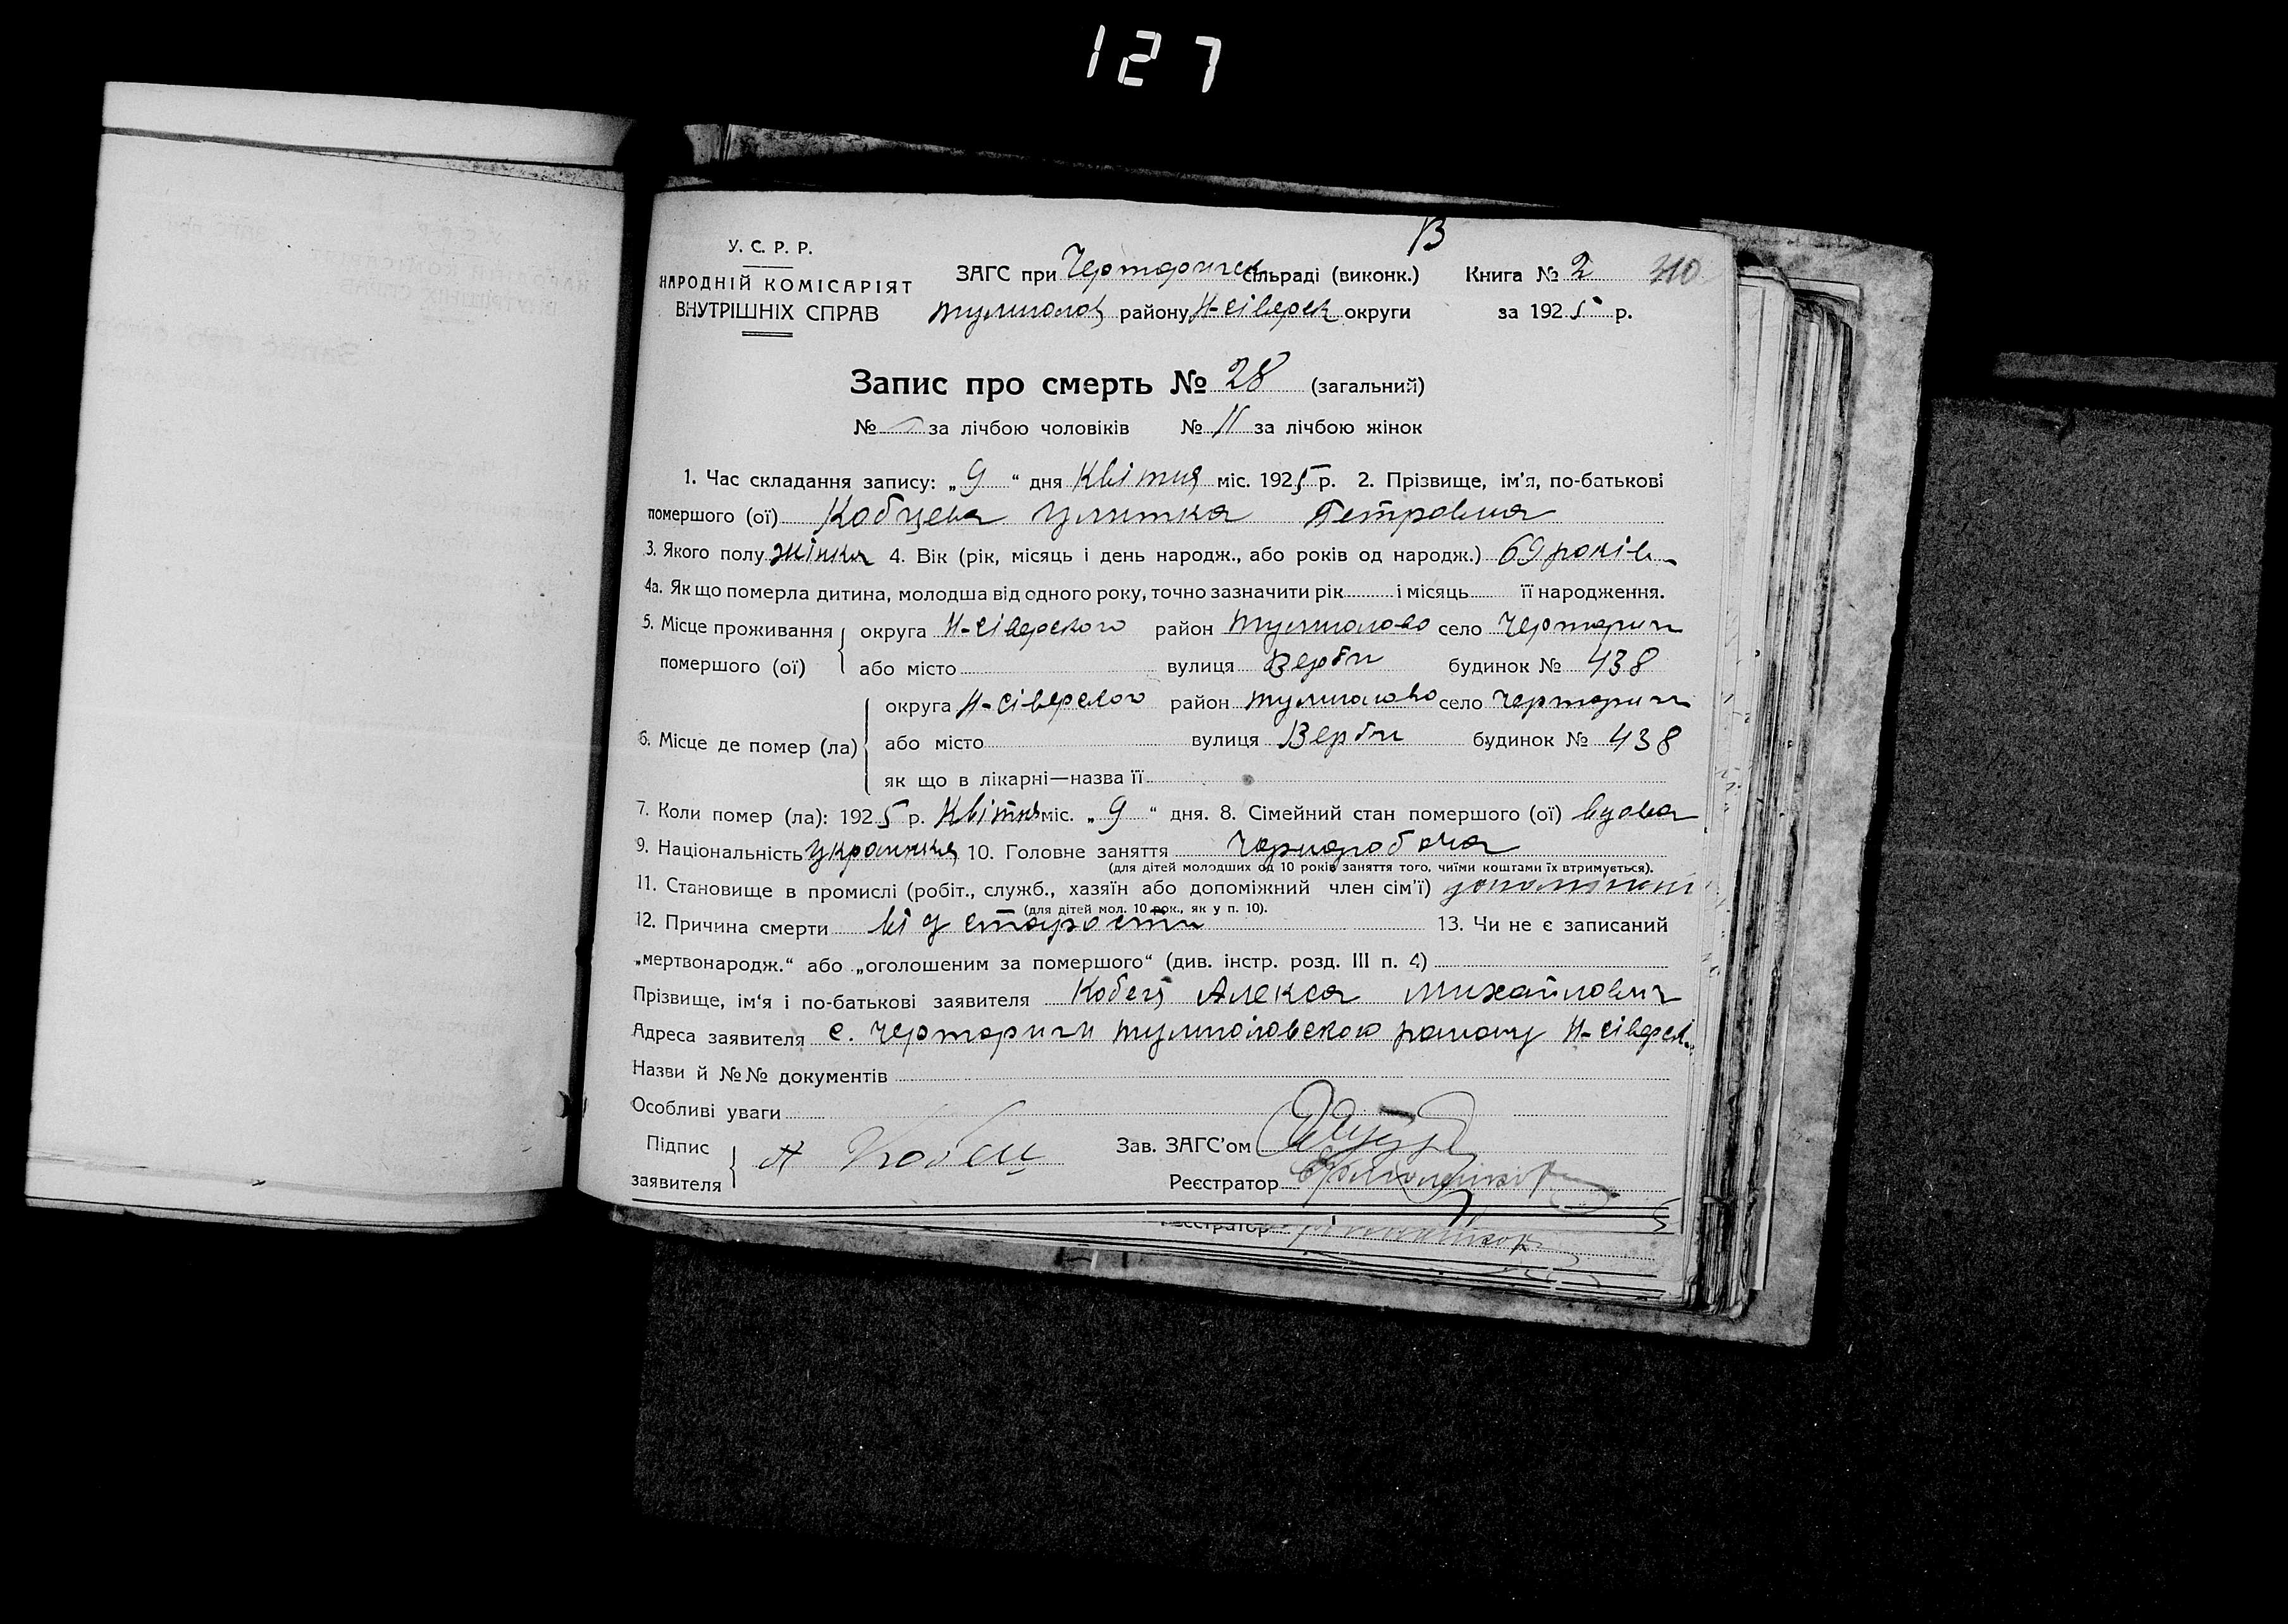 127
В
У. С. Р. Р.
НАРОДНІЙ КОМІСАРІЯТ
ВНУТРІШНІХ СПРАВ
ЗАГС при Черторигск сільраді (виконк.) Книга № 2 310
тулиголов району Н-сіверск округи за 1925 р.
Запис про смерть № 28 (загальний)
№ за лічбою чоловіків № 11 за лічбою жінок
1. Час складання запису: „9“ дня Квітня міс. 1925 р. 2. Прізвище, ім'я, по-батькові
помершого (ої) Кобцева Улитка Петровна
3. Якого полу жінка 4. Вік (рік, місяць і день народж., або років од народж.) 69 років
4а. Як що померла дитина, молодша від одного року, точно зазначити рік і місяць її народження.
5. Місце проживання округа Н-сіверського район тулиголово село Черториги
помершого (ої) або місто вулиця Верби будинок № 438
округа Н-сіверского район тулиголово село Черториги
6. Місце де помер (ла) або місто вулиця Верби будинок № 438
як що в лікарні—назва її
7. Коли помер (ла): 1925 р. Квітня міс. „9“ дня. 8. Сімейний стан помершого (ої) вдова
9. Національність українка 10. Головне заняття Чорноробоча
(для дітей молодших од 10 років заняття того, чиїми коштами їх втримується).
11. Становище в промислі (робіт., служб., хазяїн або допоміжний член сім'ї)
(для дітей мол. 10 рок., як у п. 10).
12. Причина смерти від старости 13. Чи не є записаний
„мертвонародж.“ або „оголошеним за помершого“ (див. інстр. розд. III п. 4)
Прізвище, ім'я і по-батькові заявителя Кобец Алекса Михайлович
Адреса заявителя с. Черториги тулиголовского району Н-сіверск.
Назви й №№ документів
Особливі уваги
Підпис
заявителя
А Кобец
Зав. ЗАГС'ом
Реєстратор
Реєстратор